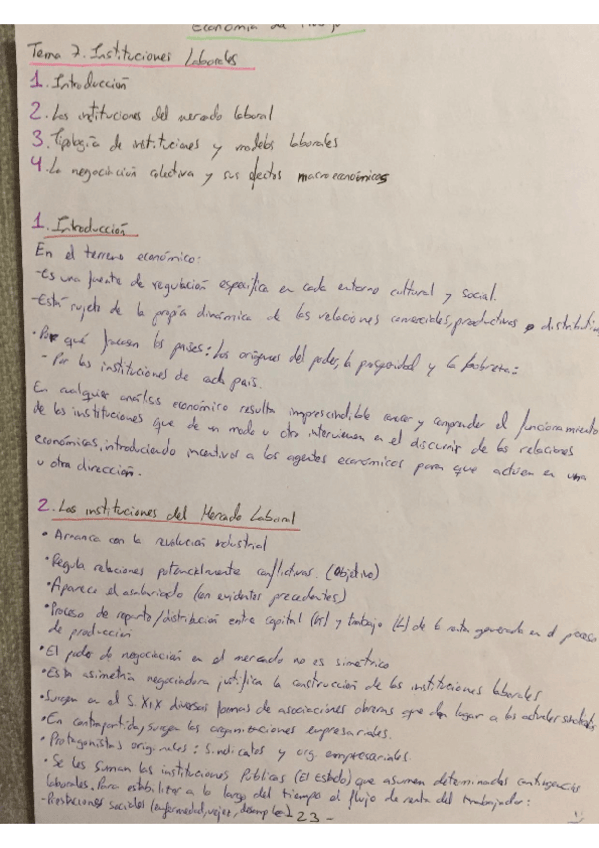 Economía del Trabajo
Tema 7. Instituciones Laborales
1. Introducción
2. Las instituciones del mercado laboral
3. Tipología de instituciones y modelos laborales
4. La negociación colectiva y sus efectos macroeconómicos
1. Introducción
En el terreno económico:
-es una fuente de regulación específica en cada entorno cultural y social.
-Está sujeto de la propia dinámica de las relaciones comerciales, productivas o distributiva
• Por qué fracasan los países: los orígenes del poder, la prosperidad y la pobreza:
- Por las instituciones de cada país.
En cualquier análisis económico resulta imprescindible conocer y comprender el funcionamiento
de las instituciones que de un modo u otro intervienen en el discurrir de las relaciones
económicas, introduciendo incentivos a los agentes económicos para que actúen en una
u otra dirección.
2. Las instituciones del Mercado Laboral
• Arranca con la revolución industrial
• Regula relaciones potencialmente conflictivas. (Objetivo)
• Aparece el asalariado (con evidentes precedentes)
• Proceso de reparto/distribución entre capital (K) y trabajo (L) de la renta generada en el proceso
de producción
• El poder de negociación en el mercado no es simétrico
• Esta asimetría negociadora justifica la construcción de las instituciones laborales
• Surgen en el S. XIX diversas formas de asociaciones obreras que dan lugar a los actuales sindicatos
• En contrapartida, surgen las organizaciones empresariales.
• Protagonistas originales: Sindicatos y org. empresariales.
• Se les suman las instituciones Públicas (El Estado) que asumen determinadas contingencias
laborales. Para estabilizar a lo largo del tiempo el flujo de renta del trabajador:
-Prestaciones sociales (enfermedad, vejez, desempleo)
- 23 -